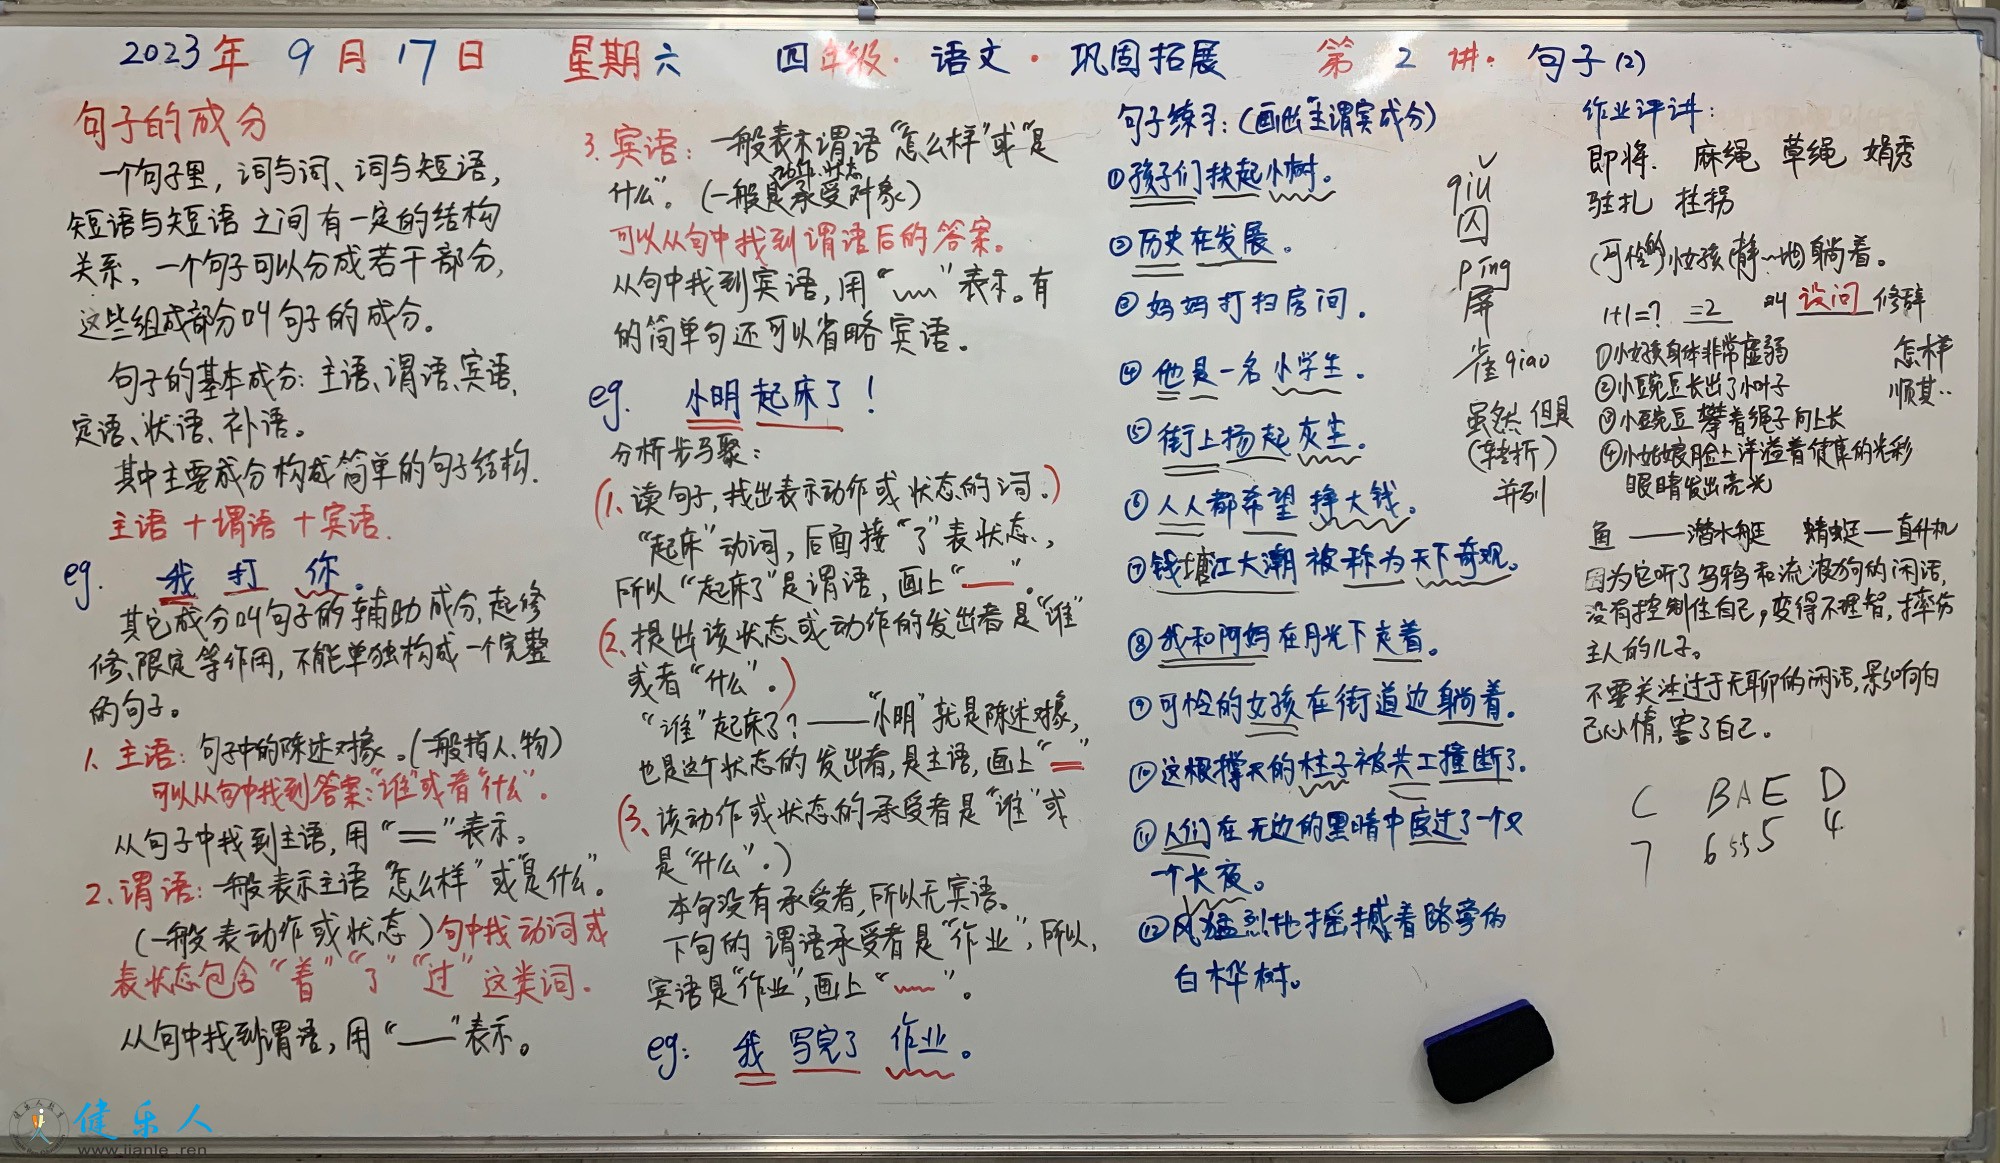 2023年 9月17日 星期六 四年级·语文·巩固拓展 第2讲·句子(2)
句子的成分
一个句子里，词与词、词与短语，
短语与短语之间有一定的结构
关系，一个句子可以分成若干部分，
这些组成部分叫句子的成分。
句子的基本成分：主语、谓语、宾语、
定语、状语、补语。
其中主要成分构成简单的句子结构.
主语＋谓语＋宾语.
eg. 我 打 你。
其它成分叫句子的辅助成分，起修
修、限定等作用，不能单独构成一个完整
的句子。
1、主语：句子中的陈述对象。(一般指人、物)
可以从句中找到答案："谁"或者"什么"。
从句子中找到主语，用"＝"表示。
2、谓语：一般表示主语"怎么样"或"是什么"。
(一般表动作或状态)句中找动词或
表状态包含"着""了""过"这类词.
从句中找到谓语，用"—"表示。
3、宾语：一般表示谓语"怎么样"或"是
什么"。(一般是动作、状态承受对象)
可以从句中找到谓语后的答案。
从句中找到宾语，用"﹏"表示。有
的简单句还可以省略宾语。
eg. 小明起床了！
分析步马聚：
(1、读句子，找出表示动作或状态的词。)
"起床"动词，后面接"了"表状态，
所以"起床了"是谓语，画上"—"。
(2、提出该状态或动作的发出者是"谁"
或者"什么"。)
"谁"起床了？——"小明"就是陈述对象，
也是这个状态的发出者，是主语，画上"＝"
(3、该动作或状态的承受者是"谁"或
是"什么"。)
本句没有承受者，所以无宾语。
下句的谓语承受者是"作业"，所以，
宾语是"作业"，画上"﹏"。
eg: 我 写完了 作业。
句子练习：(画出"主谓宾成分)
①孩子们扶起小树。
②历史在发展。
③妈妈打扫房间.
④他是一名小学生.
⑤街上扬起灰尘.
⑥人人都希望挣大钱.
⑦钱塘江大潮被称为天下奇观.
⑧我和阿妈在月光下走着。
⑨可怜的女孩在街道边躺着.
⑩这根撑天的柱子被共工撞断了.
⑪人们在无边的黑暗中度过了一个又
一个长夜。
⑫风猛烈地摇撼着路旁的
白桦树。
qiu
囚
píng
屏
雀qiao
虽然 但是
(转折)
并列
作业评讲：
即将. 麻绳 草绳 娟秀
驻扎 拄拐
(可怜的)小女孩(静~地)躺着。
1+1=? =2 叫设问修辞
①小女孩身体非常虚弱 怎样
②小豌豆长出了小叶子 顺其··
③小豌豆攀着绳子向上长
④小姑娘脸上洋溢着健康的光彩
眼睛发出亮光
鱼——潜水艇 蜻蜓—直升机
因为它听了乌鸦和流浪狗的闲话，
没有控制住自己，变得不理智，摔伤
主人的儿子。
不要关注过于无聊的闲话，影响自
己心情，害了自己。
C BAE D
7 6555 4
健乐人
www.jianle.ren